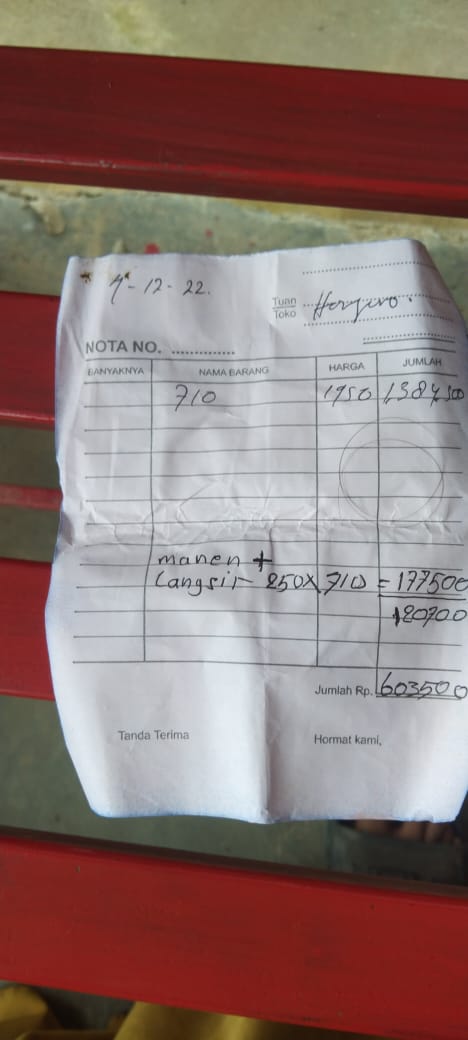 4-12-22.
Tuan
Toko
NOTA NO. ..............
BANYAKNYA NAMA BARANG HARGA JUMLAH
710 1950 1,384,500
manen +
Langsir 250 x 710 = 177500
120700
Jumlah Rp. 603500
Tanda Terima Hormat kami,